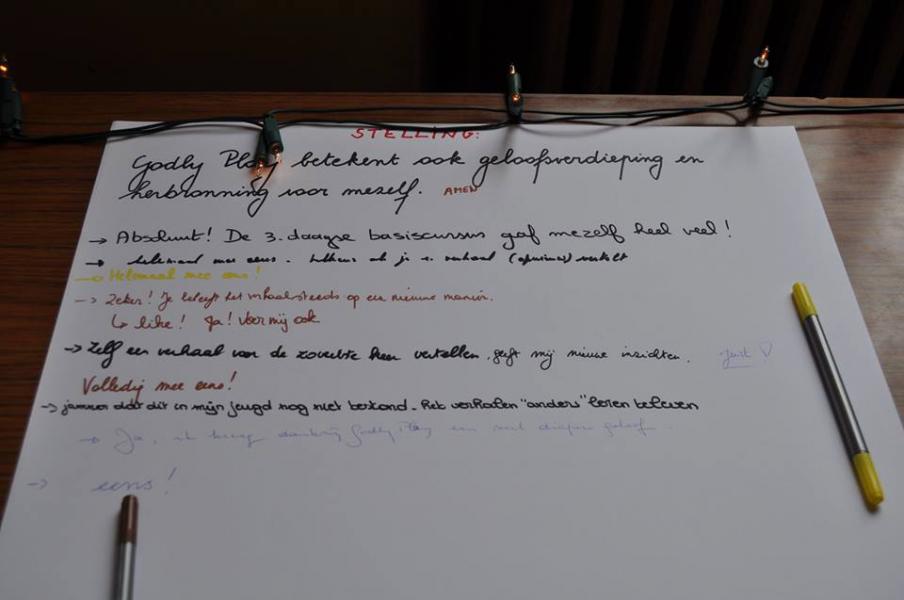 STELLING:
Godly Play betekent ook geloofsverdieping en
herbronning voor mezelf. AMEN
→ Absoluut! De 3-daagse basiscursus gaf mezelf heel veel!
→ helemaal mee eens. Telkens als je een verhaal (opnieuw) vertelt
→ Helemaal mee eens!
→ Zeker! Je beleeft het verhaal steeds op een nieuwe manier.
↳ like! Ja! Voor mij ook
→ Zelf een verhaal voor de zoveelste keer vertellen, geeft mij nieuwe inzichten. Juist
Volledig mee eens!
→ jammer dat dit in mijn jeugd nog niet bestond. Het verhalen "anders" leren beleven
→ Ja, ik kreeg dankzij Godly Play een veel dieper geloof.
→ eens!